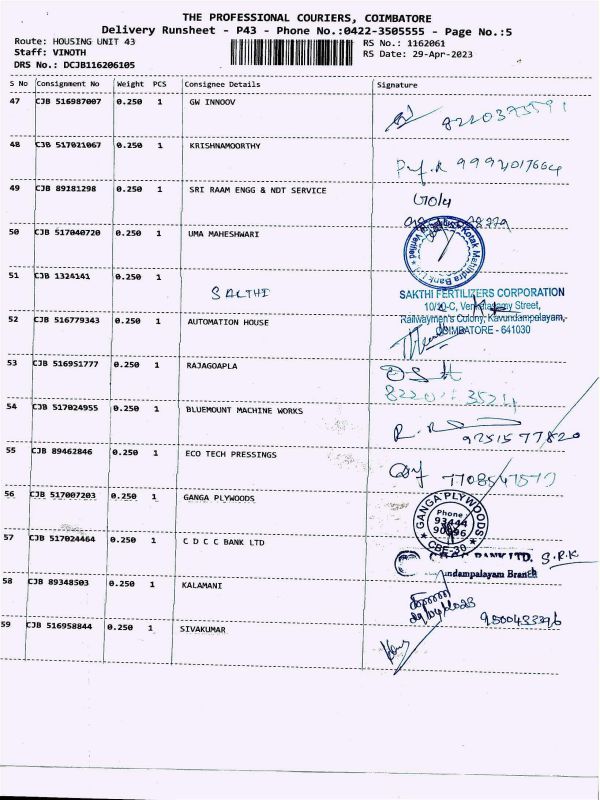 THE PROFESSIONAL COURIERS, COIMBATORE
Delivery Runsheet - P43 - Phone No.:0422-3505555 - Page No.:5
Route: HOUSING UNIT 43 RS No.: 1162061
Staff: VINOTH RS Date: 29-Apr-2023
DRS No.: DCJB116206105
S No Consignment No Weight PCS Consignee Details Signature
47 CJB 516987007 0.250 1 GW INNOOV
8220375591
48 CJB 517021067 0.250 1 KRISHNAMOORTHY
9994017664
49 CJB 89181298 0.250 1 SRI RAAM ENGG & NDT SERVICE
50 CJB 517040720 0.250 1 UMA MAHESHWARI
Kotak Mahindra Bank Ltd
51 CJB 1324141 0.250 1 SAKTHI
SAKTHI FERTILIZERS CORPORATION
10/20-C, Venkatasamy Street,
Railwaymen's Colony, Kavundampalayam,
COIMBATORE - 641030
52 CJB 516779343 0.250 1 AUTOMATION HOUSE
53 CJB 516951777 0.250 1 RAJAGOAPLA
54 CJB 517024955 0.250 1 BLUEMOUNT MACHINE WORKS
9251577820
55 CJB 89462846 0.250 1 ECO TECH PRESSINGS
56 CJB 517007203 0.250 1 GANGA PLYWOODS
GANGA PLYWOODS
Phone
93444
CBE-30
57 CJB 517024464 0.250 1 C D C C BANK LTD
BANK LTD. S.R.K
undampalayam Branch
58 CJB 89348503 0.250 1 KALAMANI
29/04/2023
59 CJB 516958844 0.250 1 SIVAKUMAR